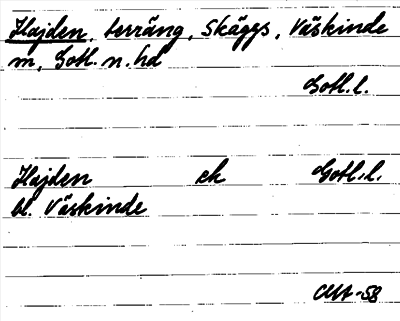 Hajden, terräng, Skäggs, Väskinde
m, Gotl. n. hd
Gotl. l.
Hajden ek Gotl. l.
bl. Väskinde
-58